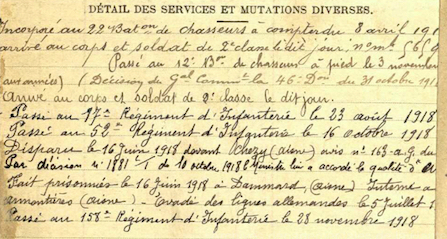 DÉTAIL DES SERVICES ET MUTATIONS DIVERSES.
Incorporé au 22e Baton de chasseurs à compter du 8 avril 191
arrivé au corps et soldat de 2e classe le dit jour. nº mle 5650
Passé au 12e Bon de chasseurs à pied le 3 novembre
(Décision du Gal Commt la 46e Don du 31 octobre 191
Arrivé au corps et soldat de 2e classe le dit jour.
Passé au 97e Régiment d'Infanterie le 23 août 1918
Passé au 52e Régiment d'Infanterie le 16 Octobre 1918
Disparu le 16 Juin 1918 devant Chézy (Aisne) avis nº 163-a.G. du
Par décision nº 1881 du 10 octobre 1918 le ministre lui a accordé la qualité d'
Fait prisonnier le 16 Juin 1918 à Dammard (Aisne) Interné à
(Aisne) - Evadé des lignes allemandes le 5 Juillet 1
Passé au 158e Régiment d'Infanterie le 28 novembre 1918